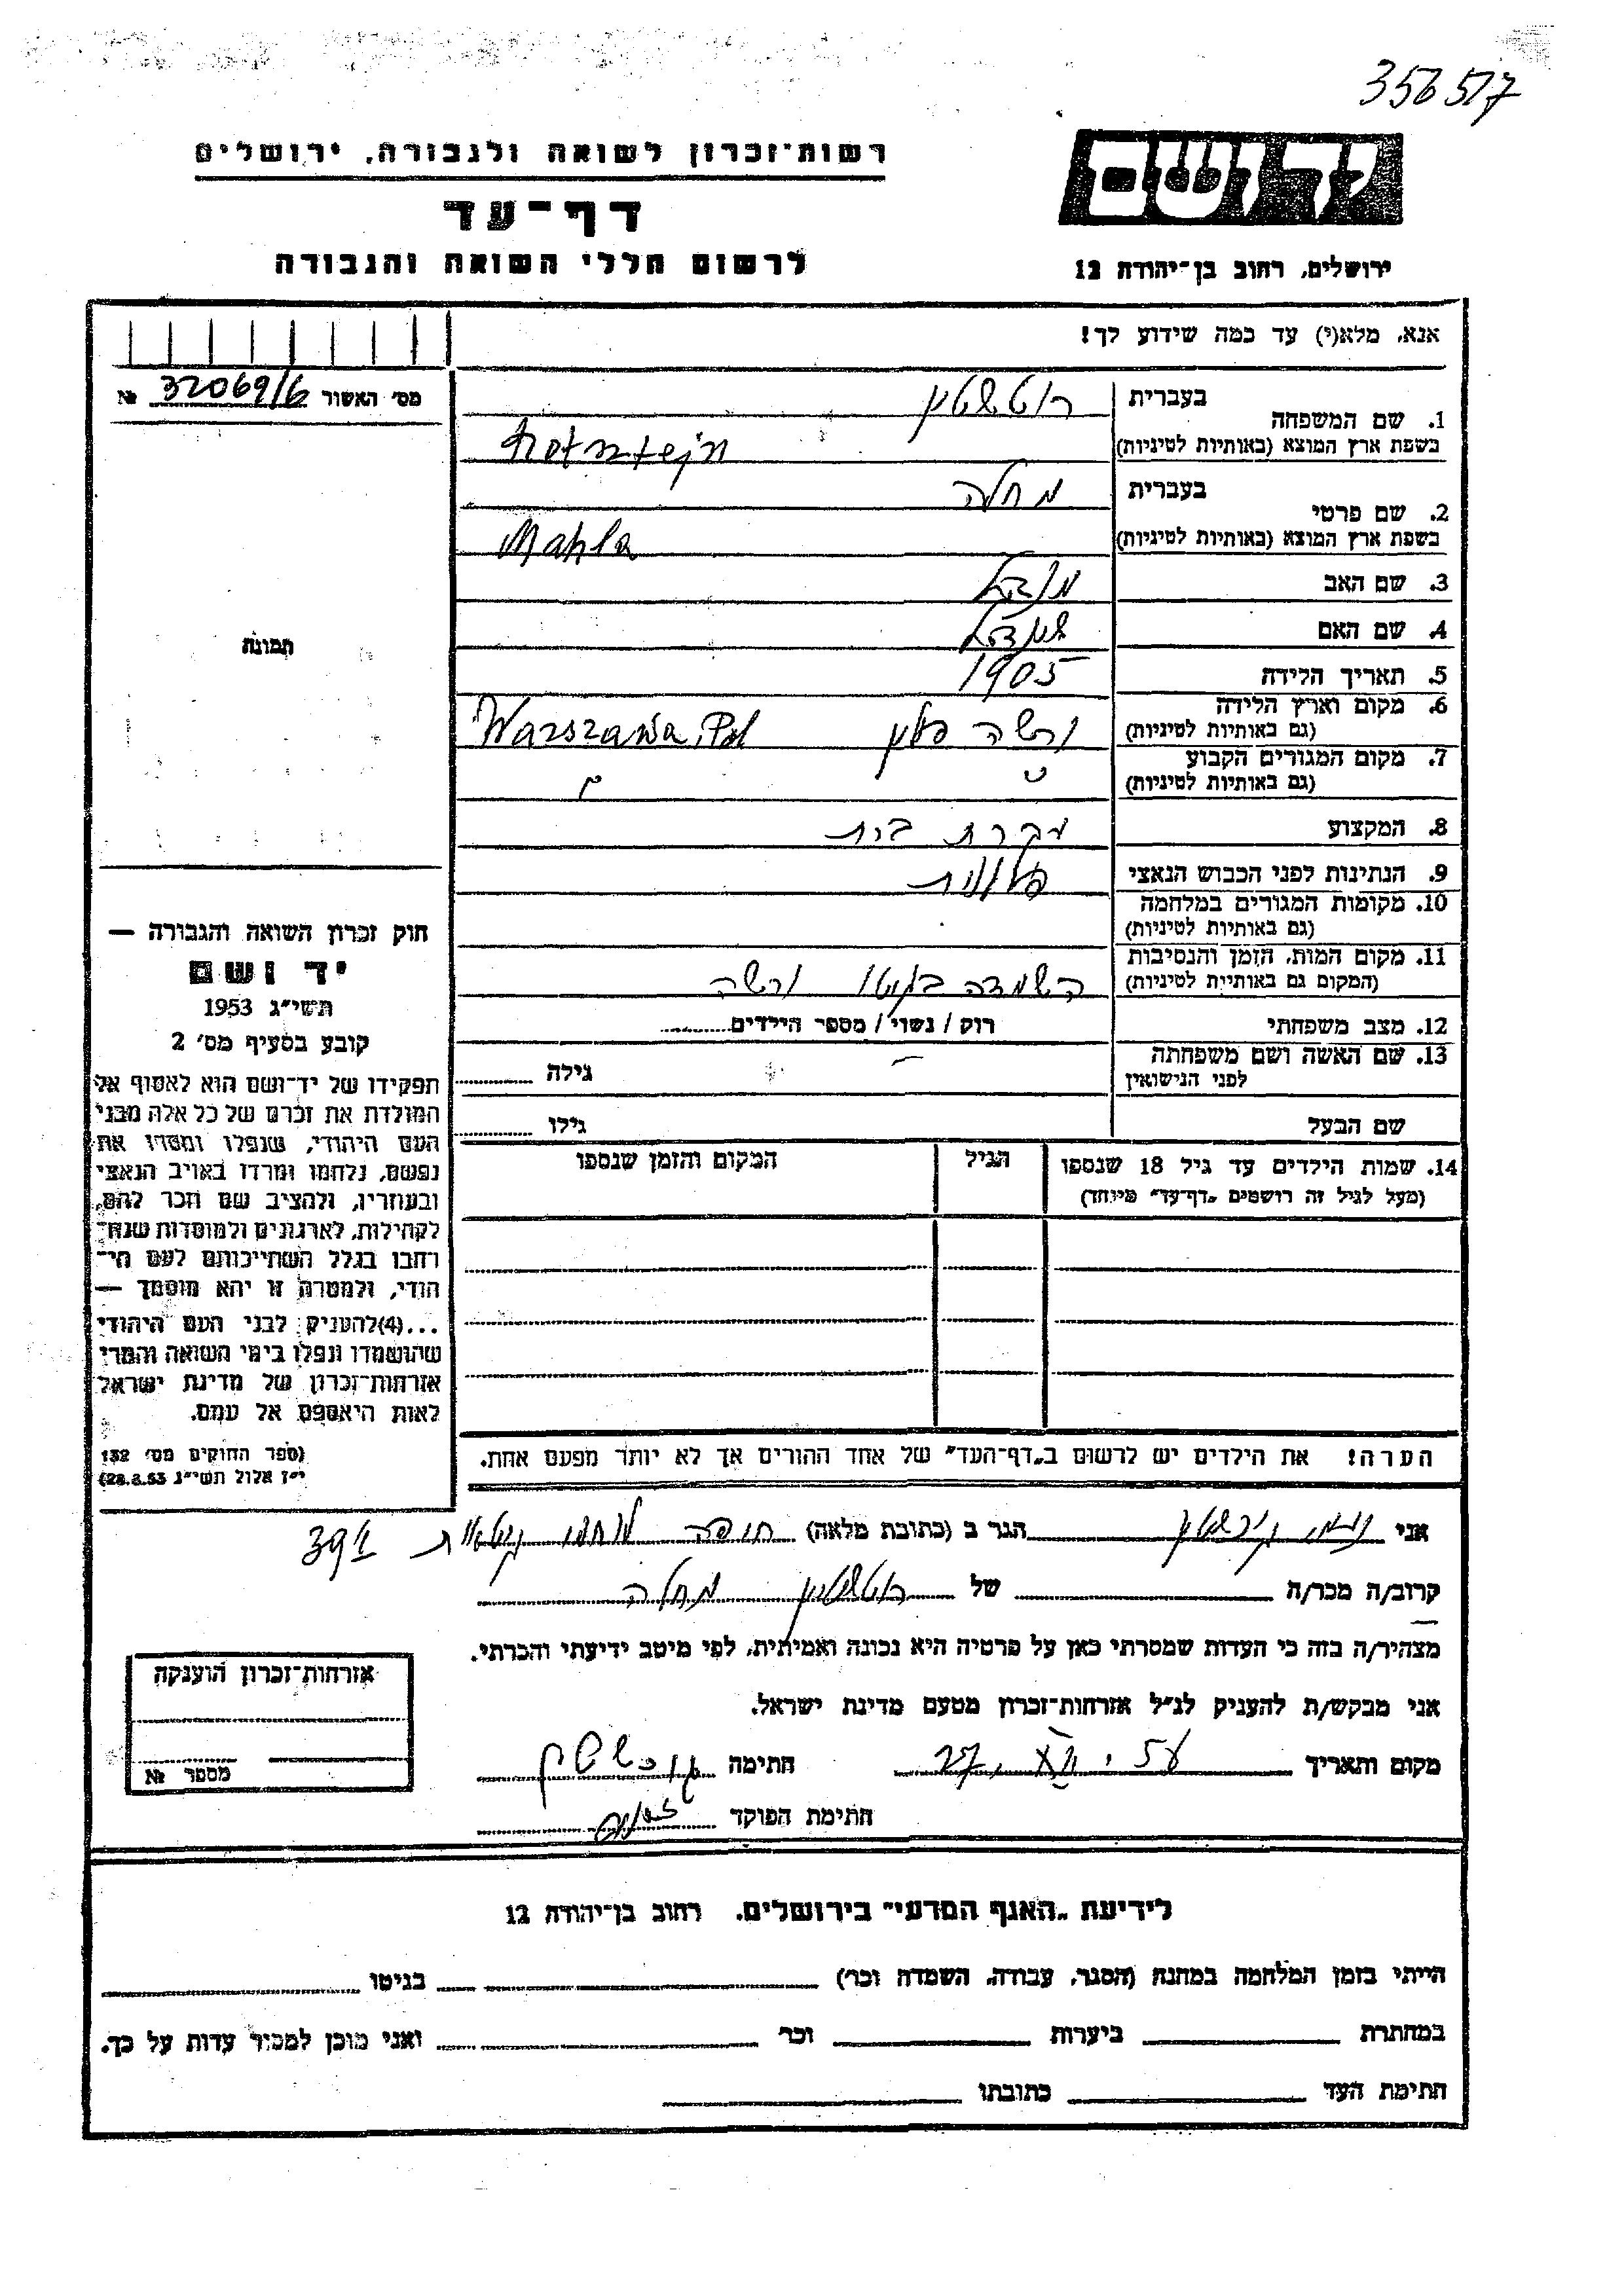 356517
רשות־זכרון לשואה ולגבורה, ירושלים
דף־עד
לרשום חללי השואה והגבורה
יד ושם
ירושלים, רחוב בן־יהודה 12
אנא, מלא(י) עד כמה שידוע לך!
מס׳ האשור 32069/6 №
1. שם המשפחה בעברית רוטשטיין
בשפת ארץ המוצא (באותיות לטיניות) Rotsztejn
2. שם פרטי בעברית מחלה
בשפת ארץ המוצא (באותיות לטיניות) Mahla
3. שם האב
4. שם האם
5. תאריך הלידה 1905
6. מקום וארץ הלידה (גם באותיות לטיניות) ורשה פולין Warszawa, Pol
7. מקום המגורים הקבוע (גם באותיות לטיניות) " "
8. המקצוע עקרת בית
9. הנתינות לפני הכבוש הנאצי פולנית
10. מקומות המגורים במלחמה (גם באותיות לטיניות)
11. מקום המות, הזמן והנסיבות (המקום גם באותיות לטיניות) השמדה בגיטו ורשה
12. מצב משפחתי רווק / נשוי / מספר הילדים
13. שם האשה ושם משפחתה לפני הנישואין — גילה
שם הבעל גילו
14. שמות הילדים עד גיל 18 שנספו הגיל המקום והזמן שנספו
(מעל לגיל זה רושמים „דף־עד" מיוחד)
הערה! את הילדים יש לרשום ב„דף־העד" של אחד ההורים אך לא יותר מפעם אחת.
תמונה
חוק זכרון השואה והגבורה —
יד ושם
תשי״ג 1953
קובע בסעיף מס׳ 2
תפקידו של יד־ושם הוא לאסוף אל
המולדת את זכרם של כל אלה מבני
העם היהודי, שנפלו ומסרו את
נפשם, נלחמו ומרדו באויב הנאצי
ובעוזריו, ולהציב שם וזכר להם,
לקהילות, לארגונים ולמוסדות שנח־
רבו בגלל השתייכותם לעם הי־
הודי, ולמטרה זו יהא מוסמך —
...(4)להעניק לבני העם היהודי
שהושמדו ונפלו בימי השואה והמרי
אזרחות־זכרון של מדינת ישראל
לאות היאספם אל עמם.
(ספר החוקים מס׳ 132
י״ז אלול תשי״ג 28.8.53)
אני הגר ב (כתובת מלאה) חיפה 39
קרוב/ה מכר/ה של רוטשטיין מחלה
מצהיר/ה בזה כי העדות שמסרתי כאן על פרטיה היא נכונה ואמיתית, לפי מיטב ידיעתי והכרתי.
אני מבקש/ת להעניק לנ״ל אזרחות־זכרון מטעם מדינת ישראל.
מקום ותאריך חתימה
חתימת הפוקד
אזרחות־זכרון הוענקה
מספר №
לידיעת „האגף המדעי" בירושלים, רחוב בן־יהודה 12
הייתי בזמן המלחמה במחנה (הסגר, עבודה, השמדה וכו׳) בגיטו
במחתרת ביערות וכו׳ ואני מוכן למסור עדות על כך.
חתימת העד כתובתו